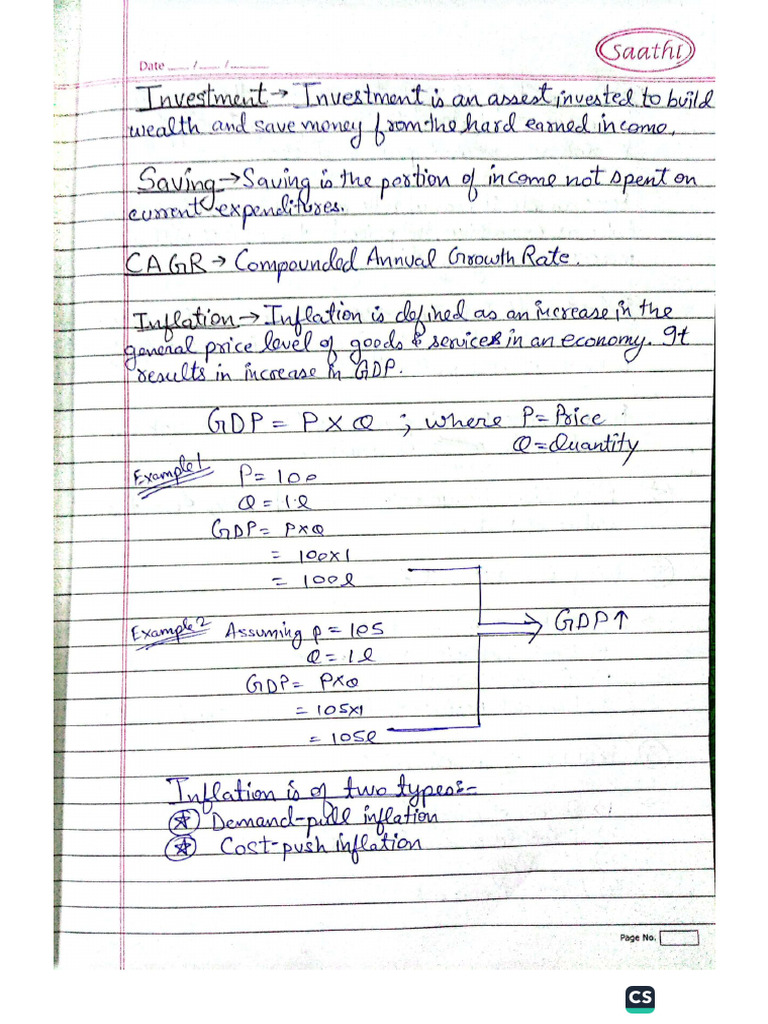 Saathi
Date ...... / ...... / ............
Investment → Investment is an assest invested to build
wealth and save money from the hard earned income.
Saving → Saving is the portion of income not spent on
current expenditures.
CAGR → Compounded Annual Growth Rate.
Inflation → Inflation is defined as an increase in the
general price level of goods & services in an economy. It
results in increase in GDP.
GDP = P × Q ; where P = Price
Q = Quantity
Example 1 P = 100
Q = 1l
GDP = P×Q
= 100×1
= 100l
Example 2 Assuming P = 105
Q = 1l
GDP = P×Q
= 105×1
= 105l
⇒ GDP↑
Inflation is of two types:-
★ Demand-pull inflation
★ Cost-push inflation
Page No.
CS